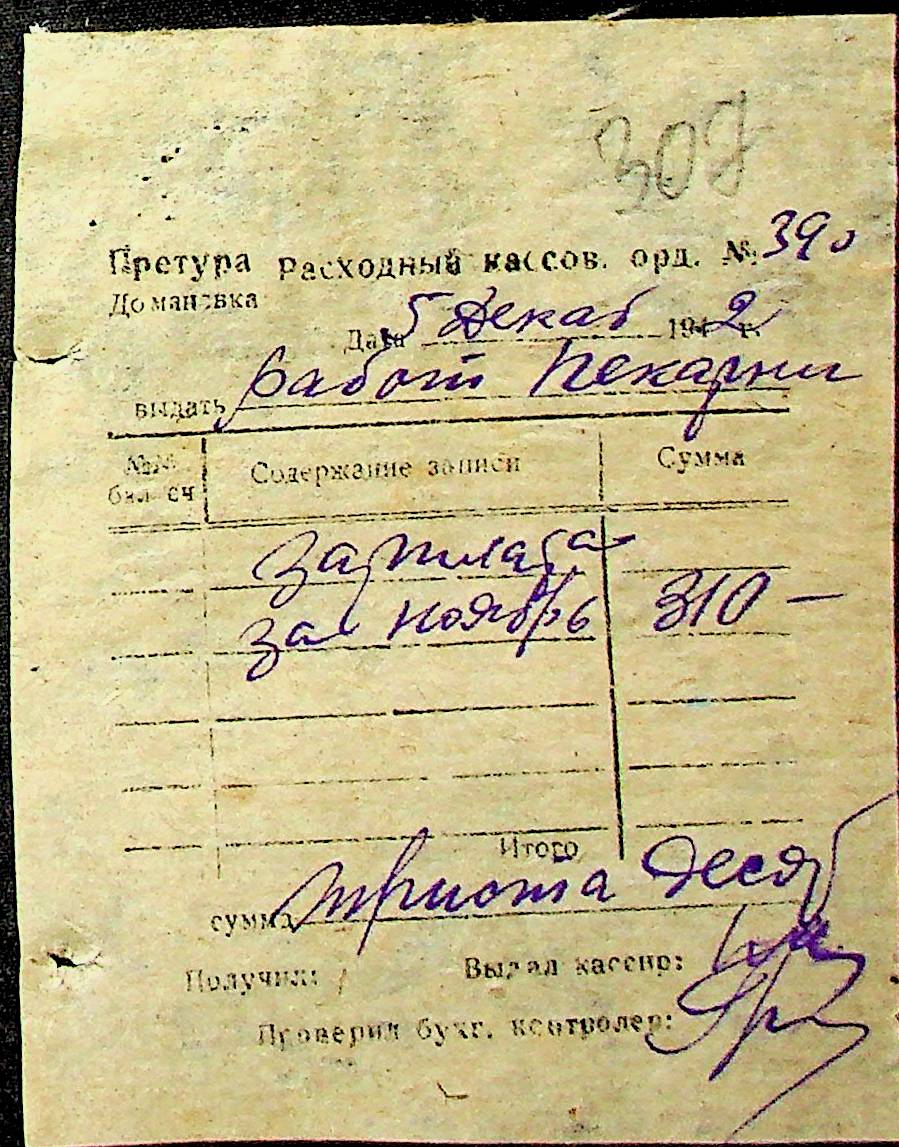 307
Претура Расходный кассов. орд. №. 390
Домановка
Дата 5 Декаб 1942 г.
выдать Работ Пекарни
№№ бал. сч Содержание записи Сумма
Зарплата
за ноябрь 310 —
Итого
сумма Триста десят
Получил: Выдал кассир:
Проверил бухг. контролер: